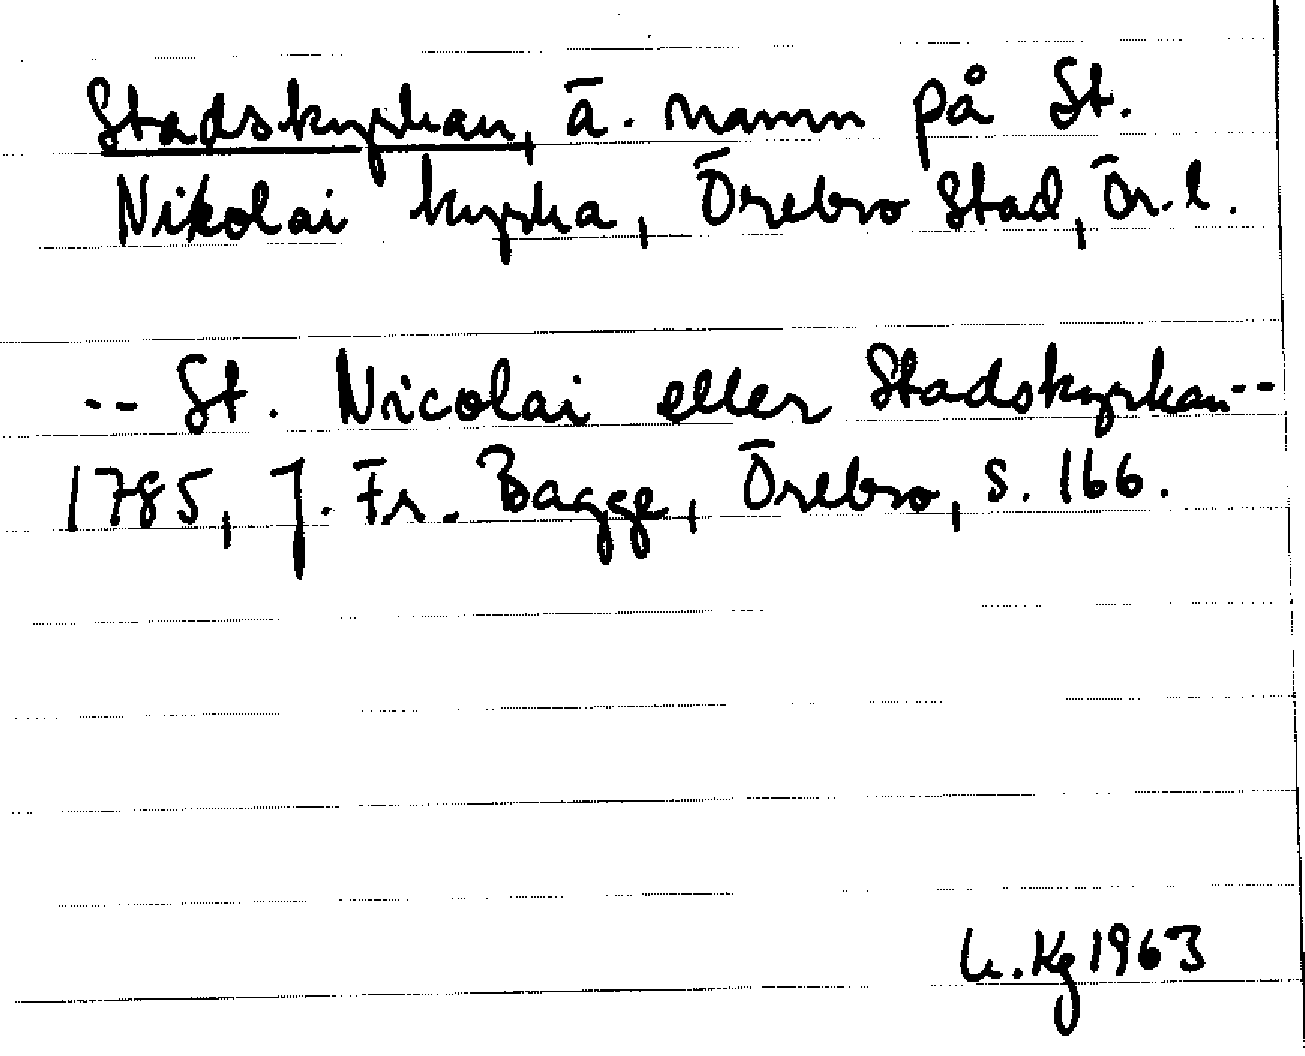 Stadskyrkan, ä. namn på St.
Nikolai kyrka, Örebro stad, Ör.l.
-- St. Nicolai eller Stadskyrkan --
1785, J. Fr. Bagge, Örebro, s. 166.
Kg 1963